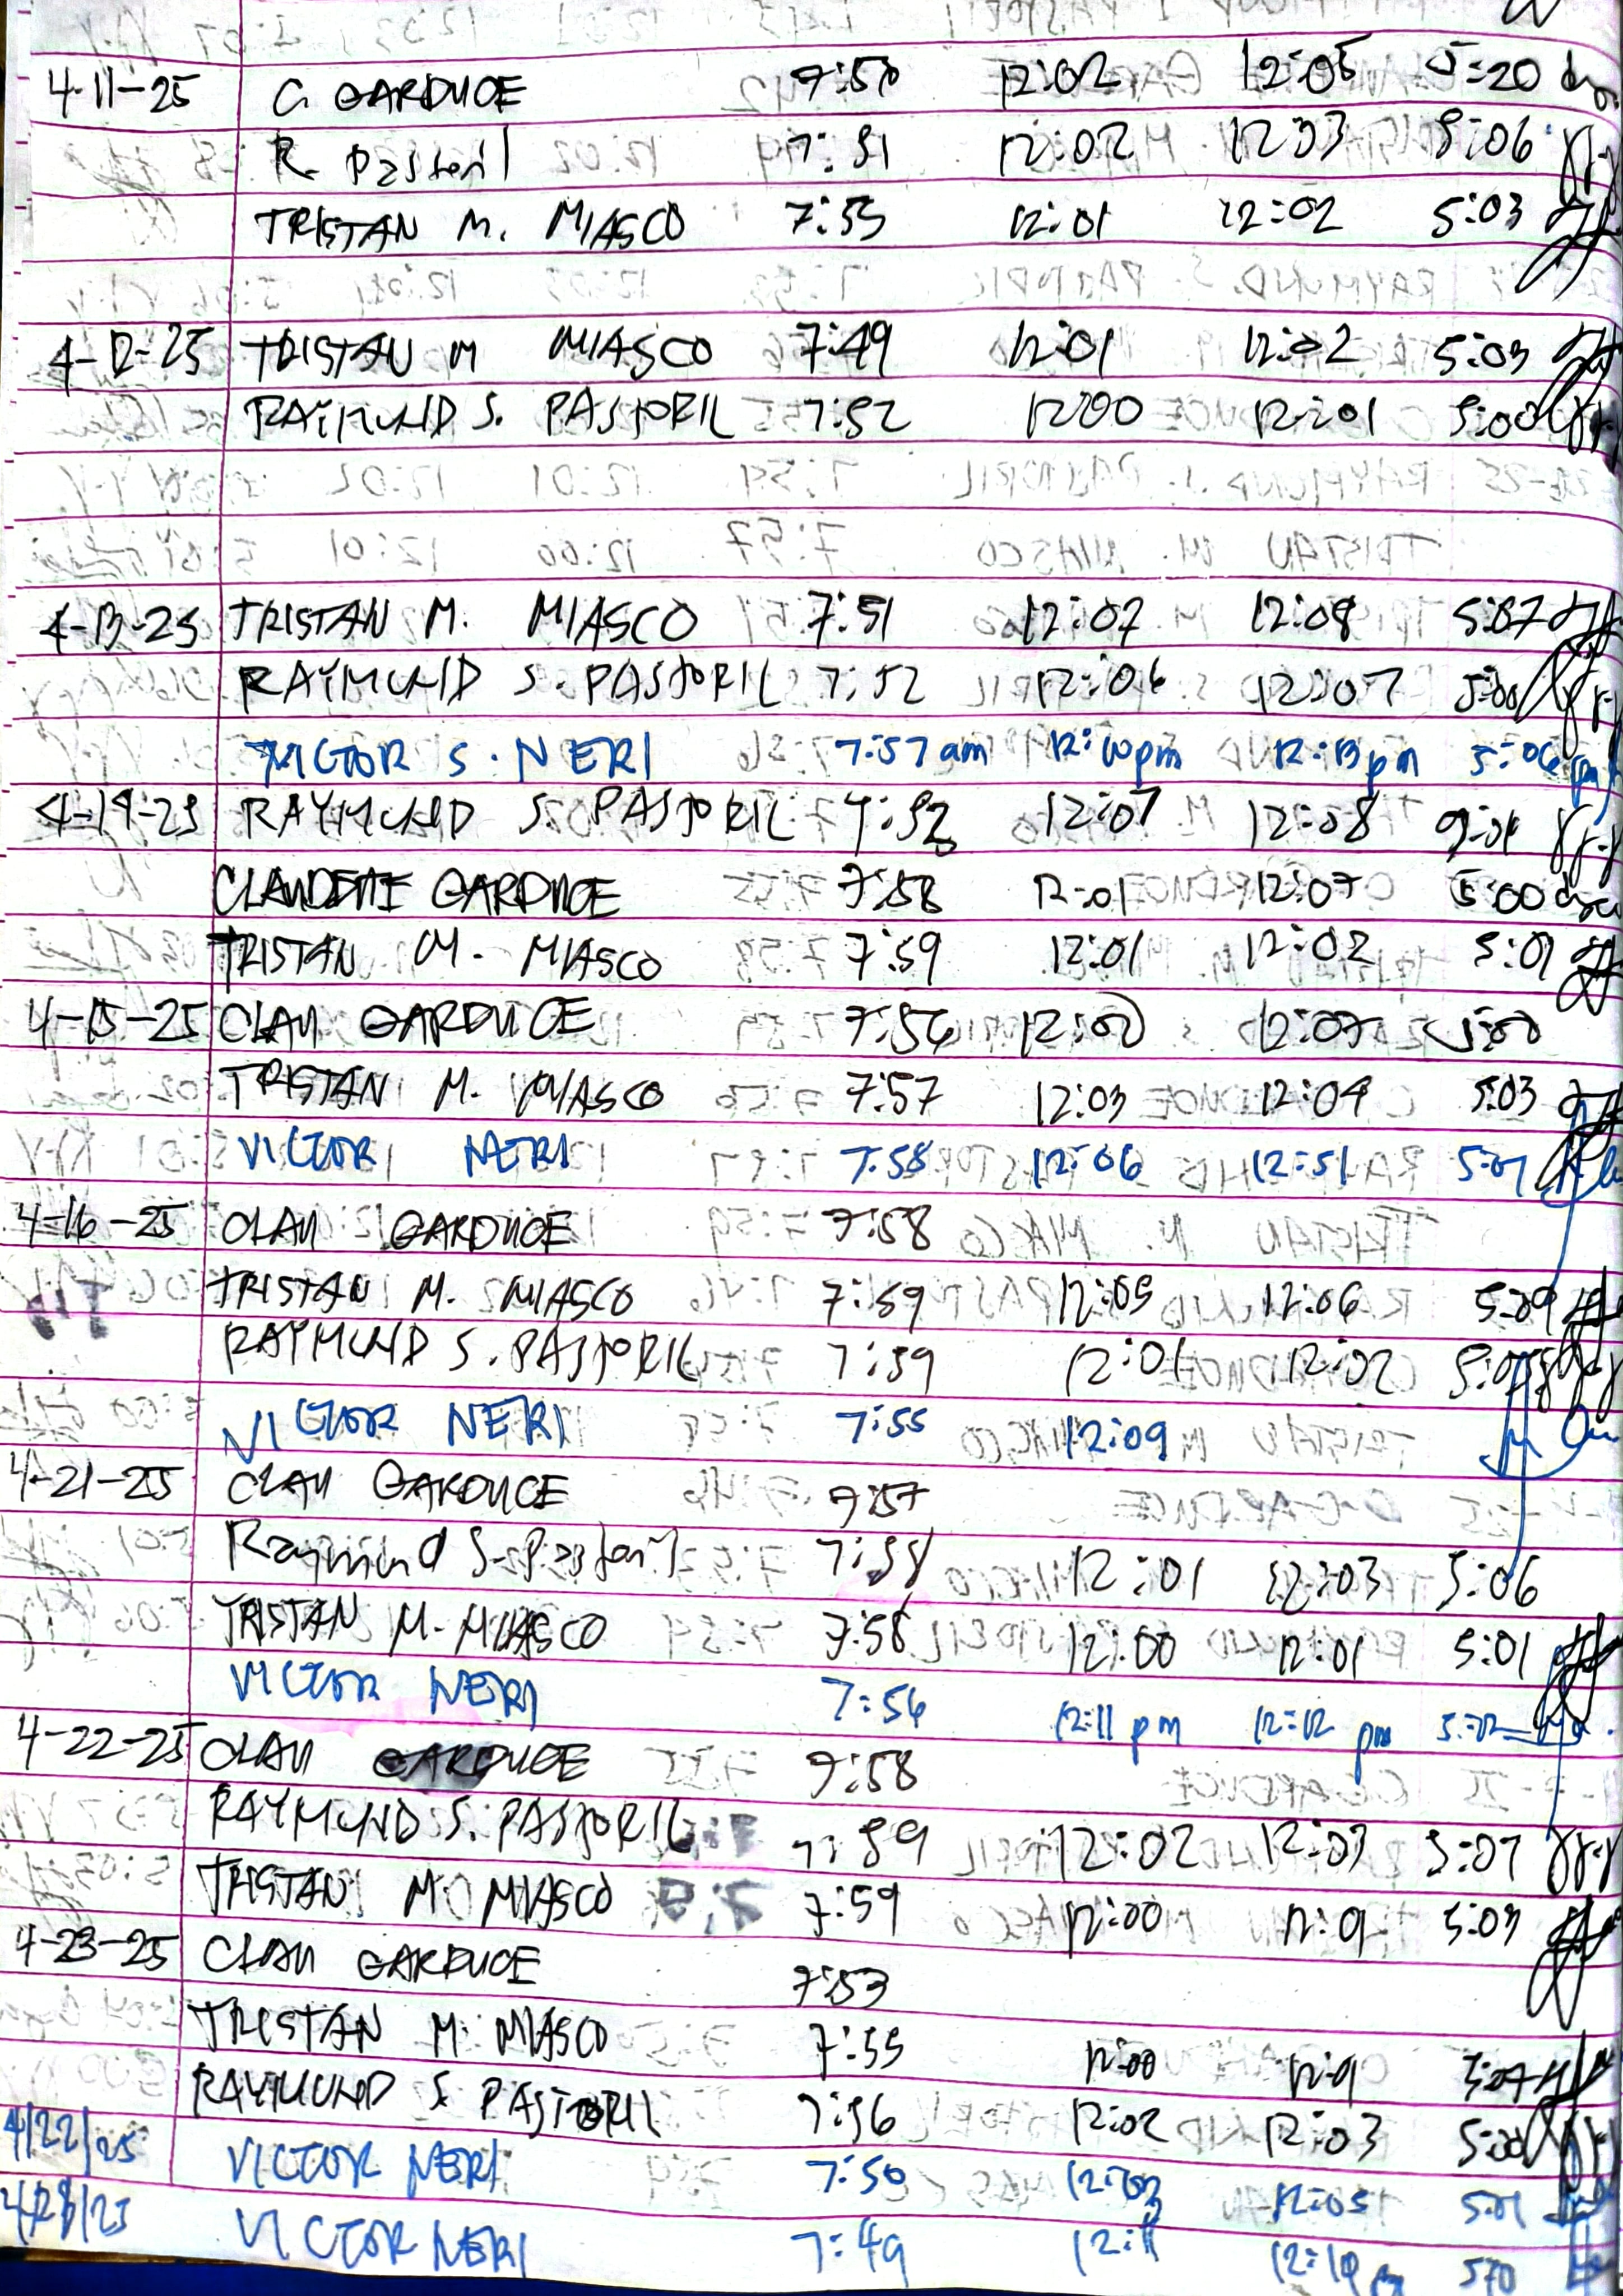 4-11-25 C. GARDUCE 7:50 12:02 12:05 5:20
R. Pastoril 7:51 12:02 12:03 5:06
TRISTAN M. MIASCO 7:55 12:01 12:02 5:03
4-12-25 TRISTAN M MIASCO 7:49 12:01 12:02 5:03
RAYMUND S. PASTORIL 7:52 12:00 12:01 5:00
4-13-25 TRISTAN M. MIASCO 7:51 12:07 12:08 5:07
RAYMUND S. PASTORIL 7:52 12:06 12:07 5:00
VICTOR S. NERI 7:57 am 12:10 pm 12:13 pm 5:06 pm
4-14-25 RAYMUND S. PASTORIL 7:52 12:07 12:08
CLAUDETTE GARDUCE 7:58 12:01 12:07 5:00
TRISTAN M. MIASCO 7:59 12:01 12:02 5:01
4-15-25 CLAU GARDUCE 7:56 12:00 12:07 5:00
TRISTAN M. MIASCO 7:57 12:03 12:04 5:03
VICTOR NERI 7:58 12:06 12:51 5:01
4-16-25 CLAU GARDUCE 7:58
TRISTAN M. MIASCO 7:59 12:05 12:06 5:09
RAYMUND S. PASTORIL 7:59 12:01 12:02
VICTOR NERI 7:55 12:09
4-21-25 CLAU GARDUCE 7:57
Raymund S. Pastoril 7:58 12:01 12:03 5:06
TRISTAN M. MIASCO 7:58 12:00 12:01 5:01
VICTOR NERI 7:56 12:11 pm 12:12 pm 5:12
4-22-25 CLAU GARDUCE 7:58
RAYMUND S. PASTORIL 7:59 12:02 12:03 5:07
TRISTAN M. MIASCO 7:59 12:00 12:01 5:03
4-23-25 CLAU GARDUCE 7:53
TRISTAN M. MIASCO 7:55 12:00 12:01 5:07
RAYMUND S. PASTORIL 7:56 12:02 12:03 5:00
4/22/25 VICTOR NERI 7:50 12:03 12:05 5:01
4/23/25 VICTOR NERI 7:49 12:11